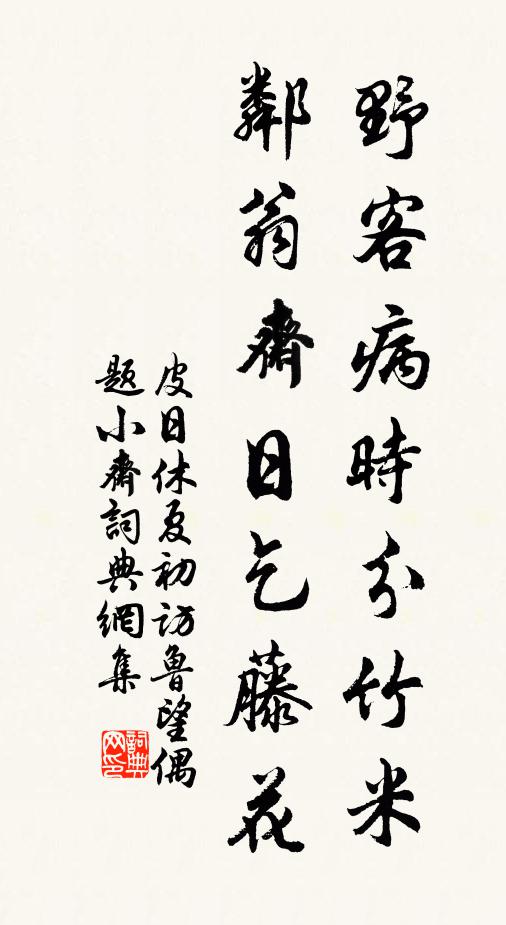 野客病時分竹米
鄰翁齋日乞藤花
皮日休夏初訪魯望偶
題小齋詞典網集
詞典
网印